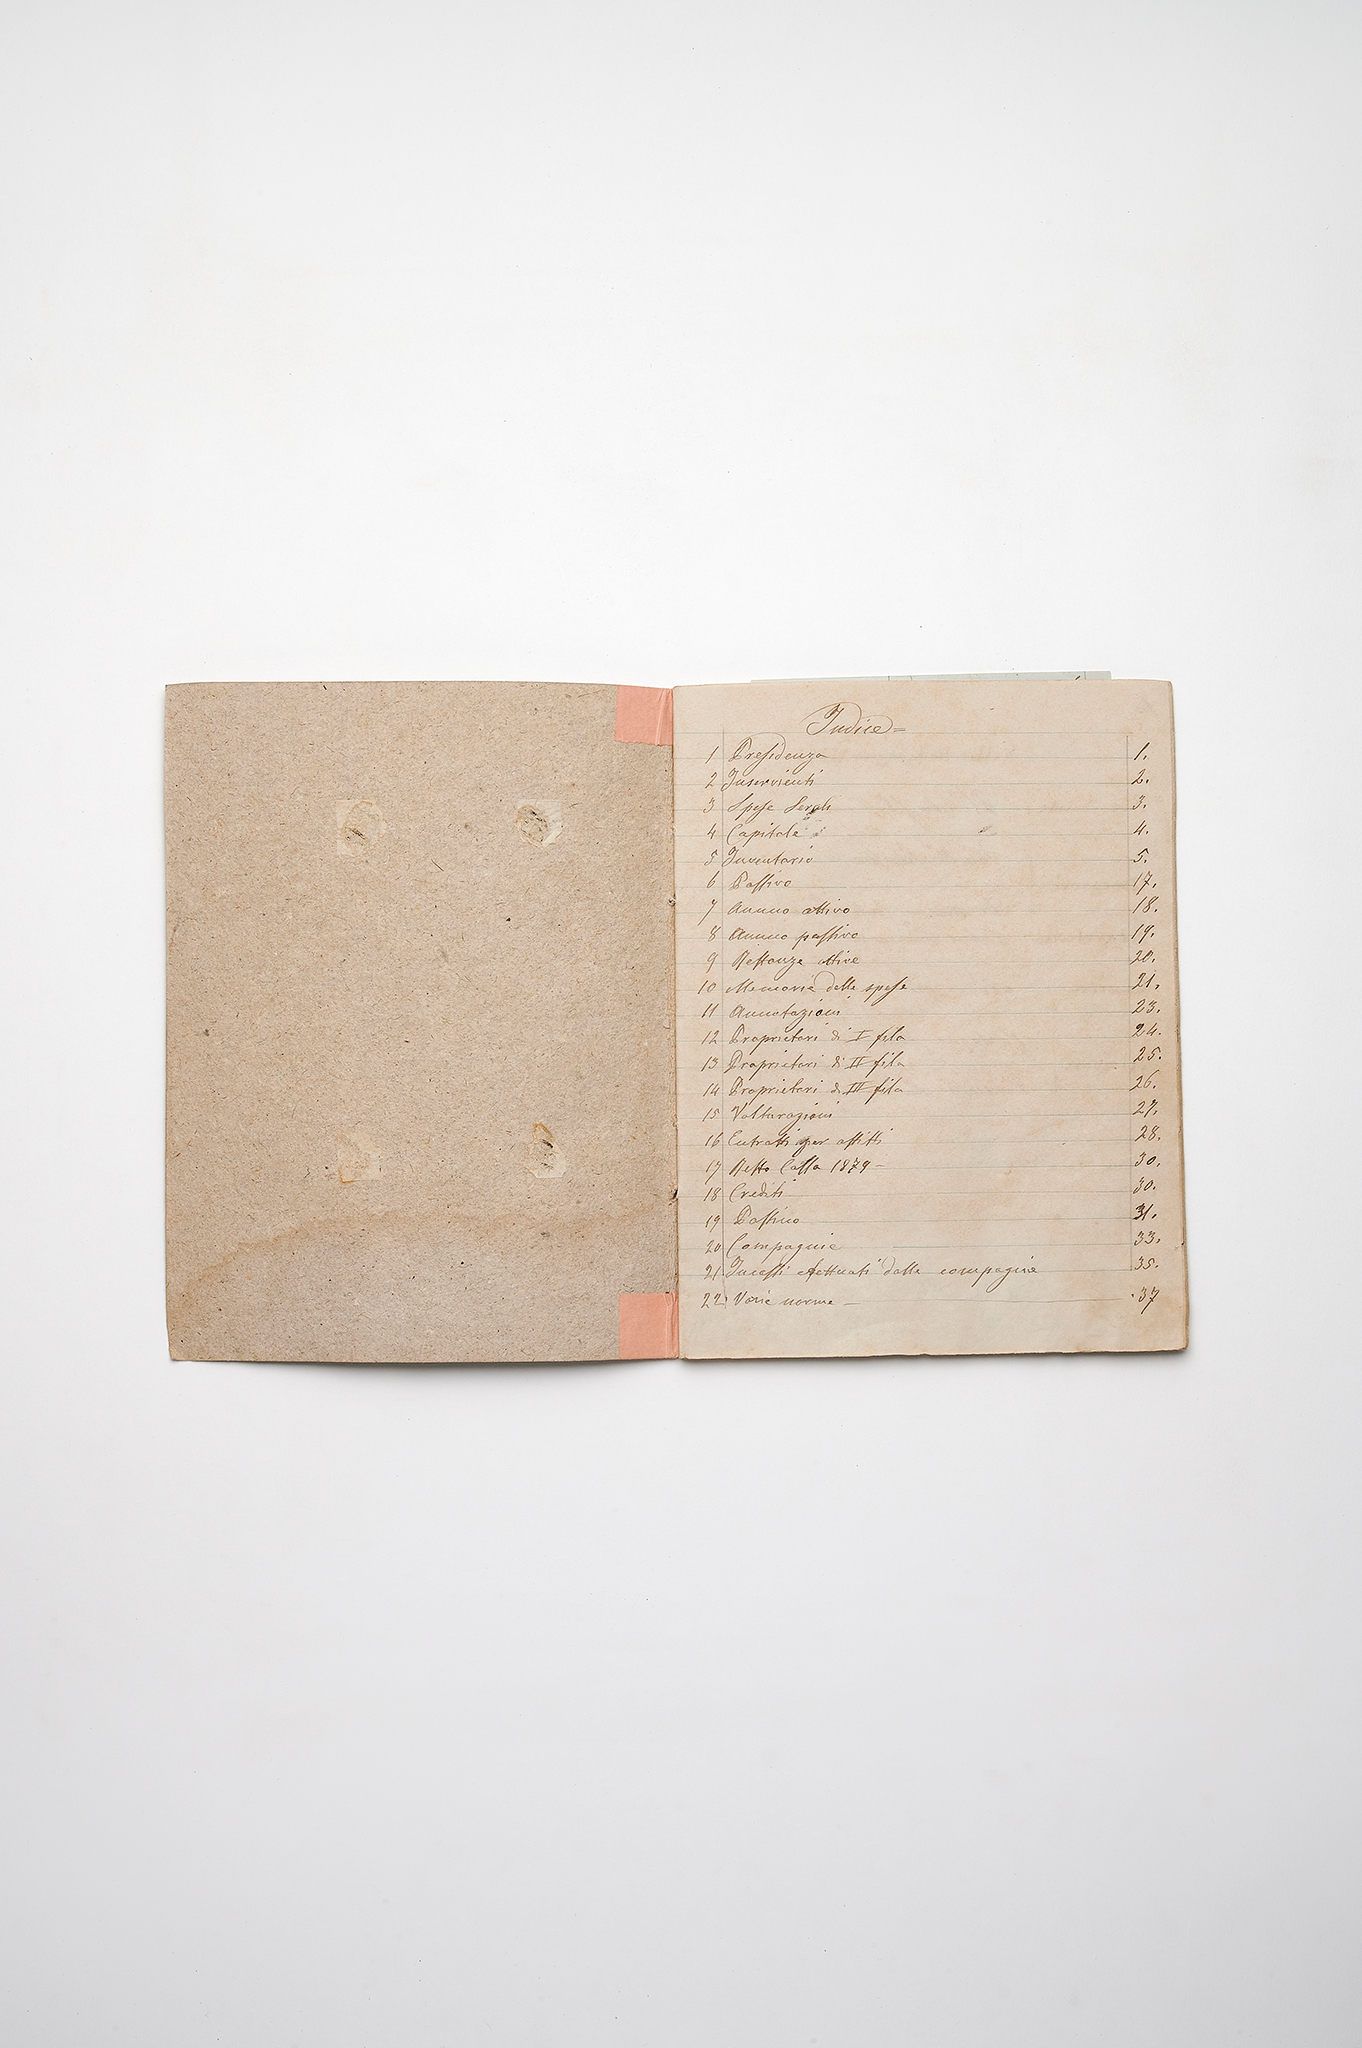 Indice=
1 Presidenza 1.
2 Inservienti 2.
3 Spese Serali 3.
4 Capitale 4.
5 Inventario 5.
6 Passivo 17.
7 Annuo attivo 18.
8 Annuo passivo 19.
9 Restanze attive 20.
10 Memorie delle spese 21.
11 Annotazioni 23.
12 Proprietari di I fila 24.
13 Proprietari di II fila 25.
14 Proprietari di III fila 26.
15 Volturazioni 27.
16 Entratti per affitti 28.
17 Resto Cassa 1879 - 30.
18 Crediti 30.
19 Passivo 31.
20 Compagnie 33.
21 Incassi effettuati dalle compagnie 35.
22 Varie norme - 37